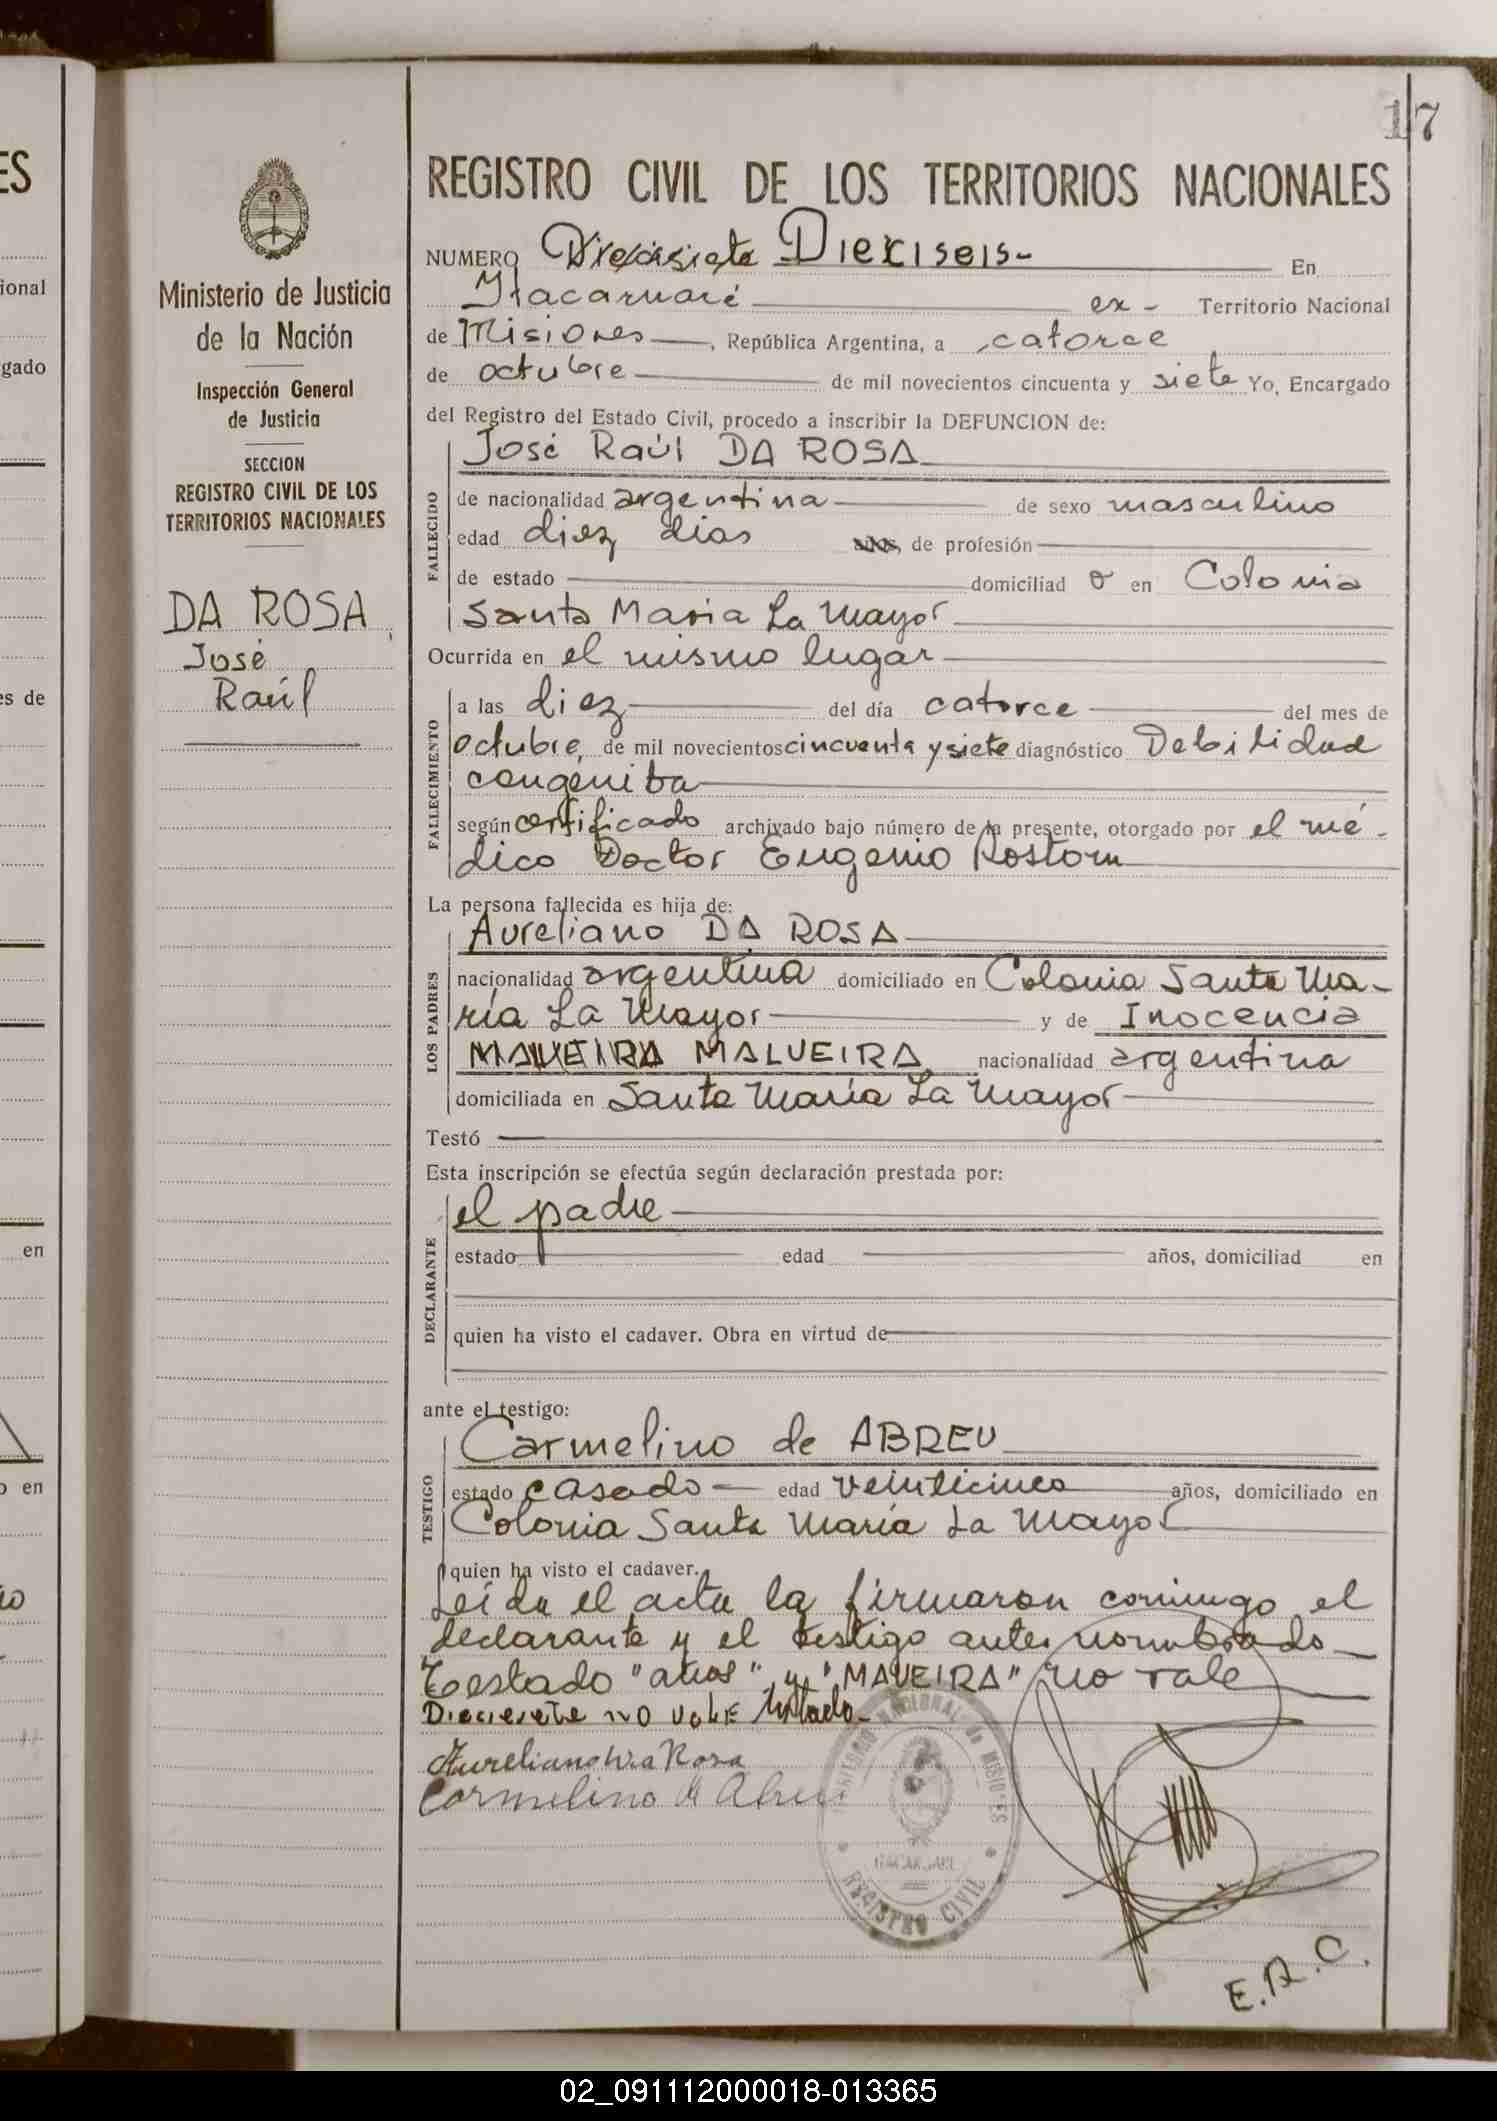 17
REGISTRO CIVIL DE LOS TERRITORIOS NACIONALES
NUMERO Diecisiete Dieciseis- En
Itacaruaré ex - Territorio Nacional
de Misiones, República Argentina, a catorce
de octubre de mil novecientos cincuenta y siete Yo, Encargado
del Registro del Estado Civil, procedo a inscribir la DEFUNCION de:
José Raúl DA ROSA
FALLECIDO
de nacionalidad argentina de sexo masculino
edad diez dias años, de profesión
de estado domiciliad o en Colonia
Santa Maria La Mayor
Ocurrida en el mismo lugar
FALLECIMIENTO
a las diez del día catorce del mes de
octubre, de mil novecientos cincuenta y siete diagnóstico Debilidad
congénita
según certificado archivado bajo número de la presente, otorgado por el mé-
dico Doctor Eugenio Rostom
La persona fallecida es hija de:
LOS PADRES
Aureliano DA ROSA
nacionalidad argentina domiciliado en Colonia Santa Ma-
ría La Mayor y de Inocencia
MAVEIRA MALUEIRA nacionalidad argentina
domiciliada en Santa María La Mayor
Testó
Esta inscripción se efectúa según declaración prestada por:
DECLARANTE
el padre
estado edad años, domiciliad en
quien ha visto el cadaver. Obra en virtud de
ante el testigo:
TESTIGO
Carmelino de ABREU
estado casado edad veinticinco años, domiciliado en
Colonia Santa María La Mayor
quien ha visto el cadaver.
Leída el acta la firmaron conmigo el
declarante y el testigo antes nombrado
Testado "años" y "MAVEIRA" no vale
Diecisiete no vale testado-
Aureliano Da Rosa
Carmelino de Abreu
TERRITORIO NACIONAL de MISIONES
ITACARUARE
REGISTRO CIVIL
E.R.C.
Ministerio de Justicia
de la Nación
Inspección General
de Justicia
SECCION
REGISTRO CIVIL DE LOS
TERRITORIOS NACIONALES
DA ROSA,
José
Raúl
ES
ional
gado
es de
en
o en
02_091112000018-013365